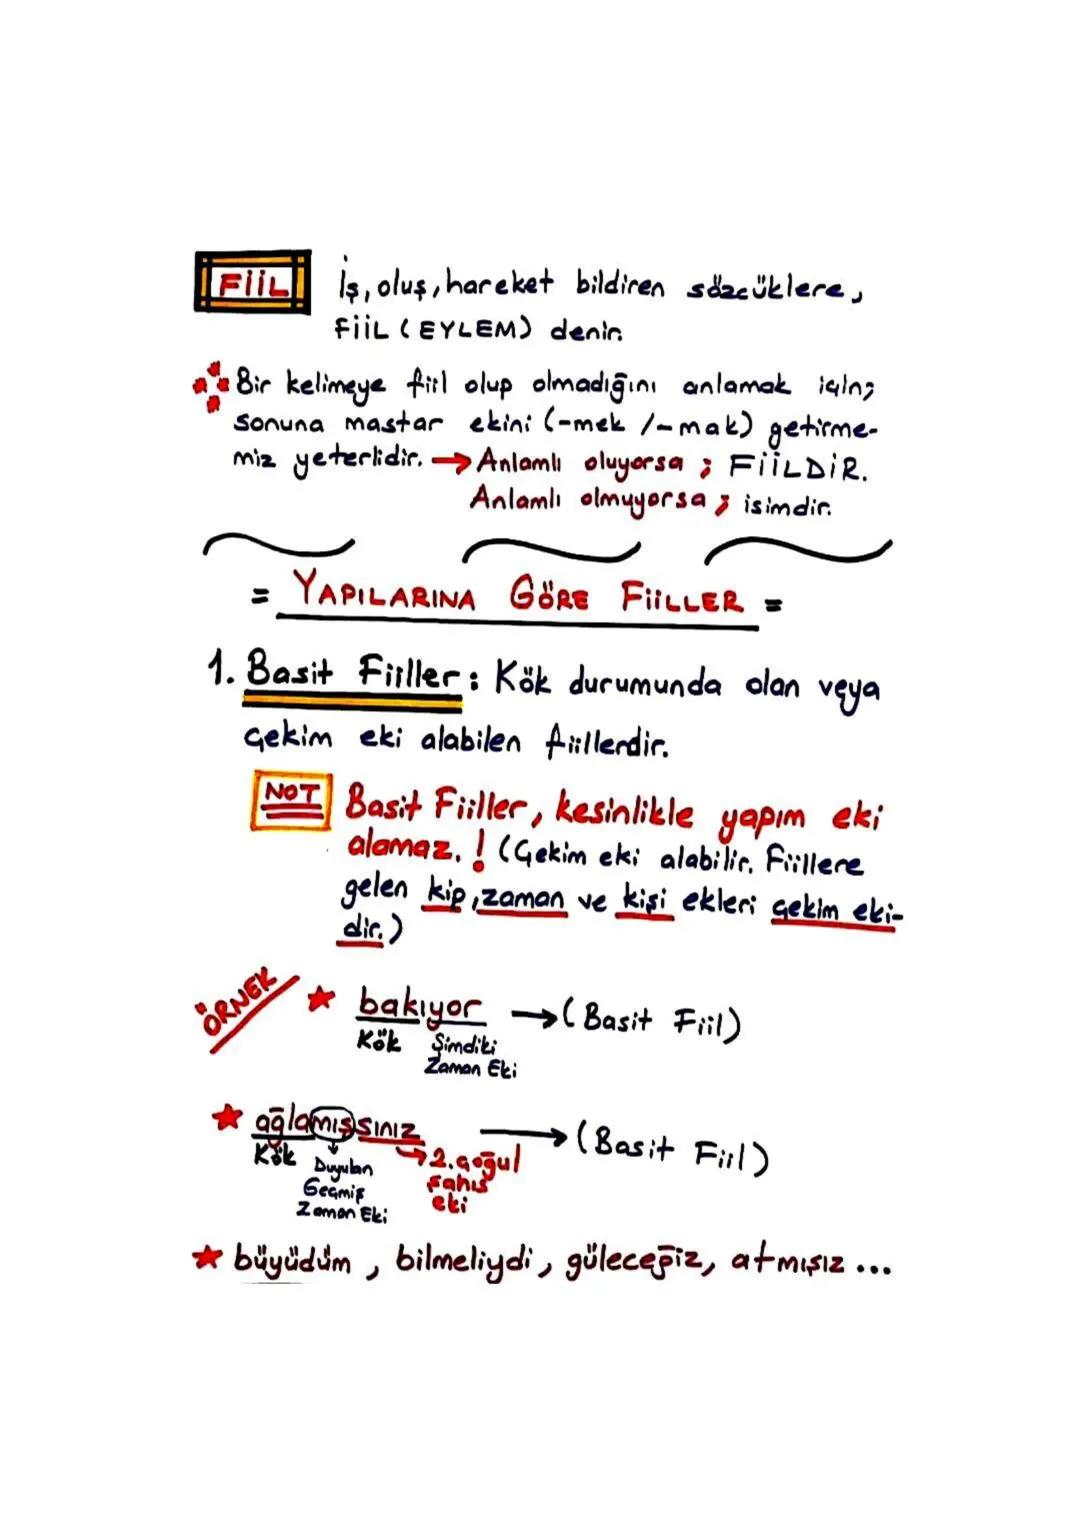 FİİL
İş, oluş, hareket bildiren sözcüklere,
FİİL (EYLEM) denir.
Bir kelimeye fiil olup olmadığını anlamak için;
sonuna mastar ekini (-mek /-mak) getirme-
miz yeterlidir. → Anlamlı oluyorsa ; FİİLDİR.
Anlamlı olmuyorsa ; isimdir.
= YAPILARINA GÖRE FİİLLER =
1. Basit Fiiller : Kök durumunda olan veya
çekim eki alabilen fiillerdir.
NOT
Basit Fiiller, kesinlikle yapım eki
alamaz. ! (Çekim eki alabilir. Fiillere
gelen kip, zaman ve kişi ekleri çekim eki-
dir.)
ÖRNEK
★ bakıyor → (Basit Fiil)
Kök Şimdiki
Zaman Eki
★ ağlamışsınız → (Basit Fiil)
Kök Duyulan
Geçmiş
Zaman Eki
→ 2. çoğul
şahıs
eki
★ büyüdüm , bilmeliydi , güleceğiz, atmışız ...